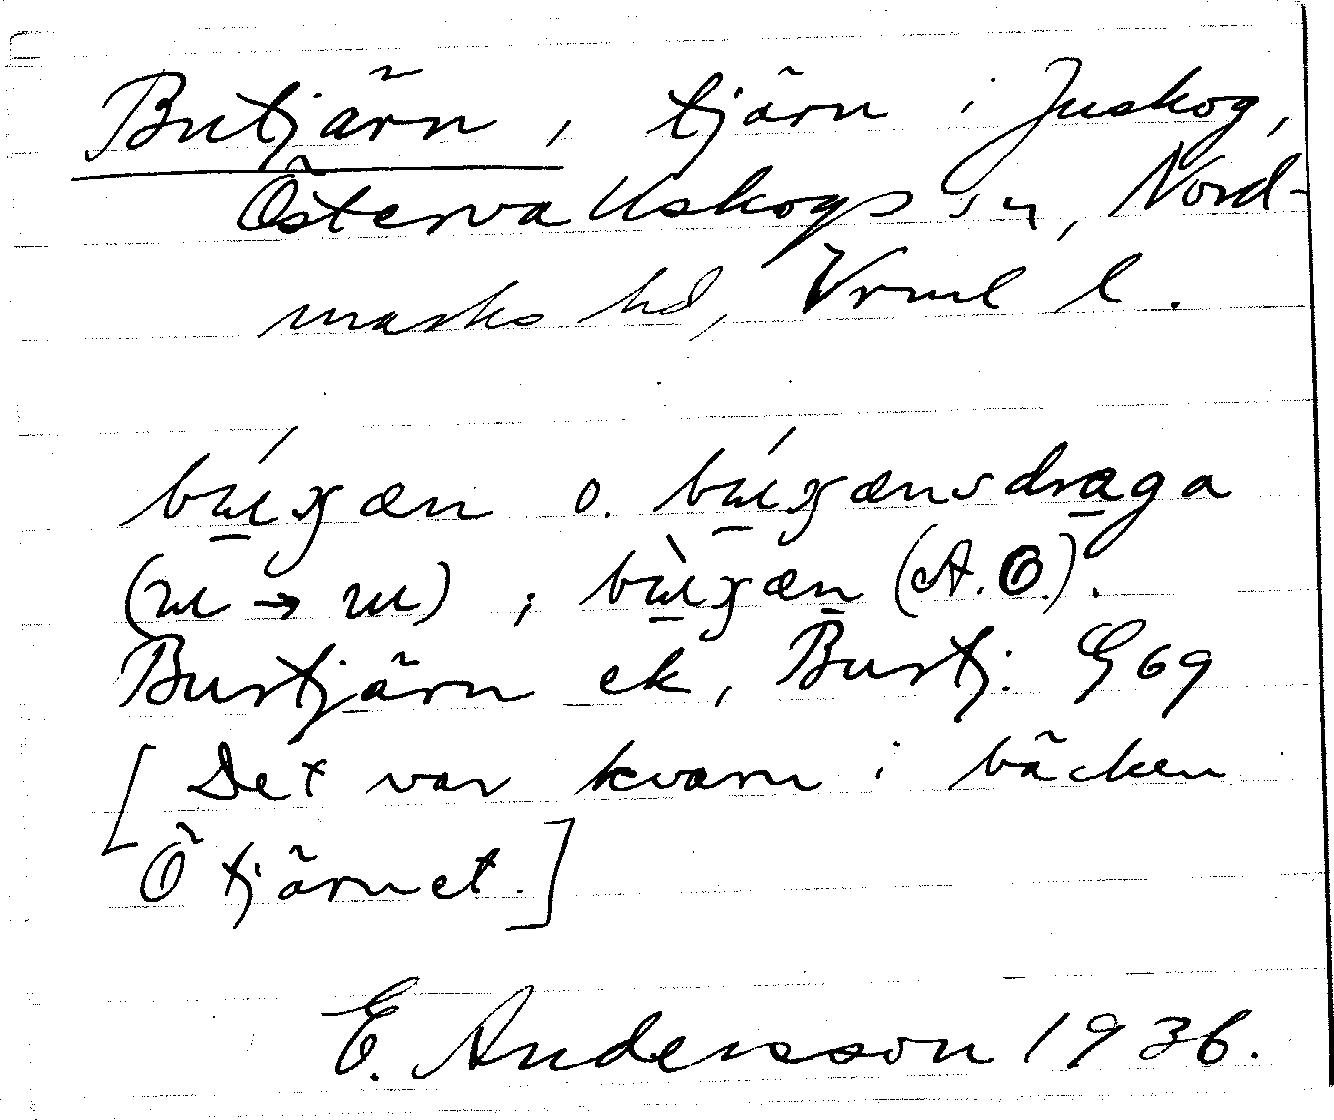 Butjärn, tjärn i Juskog,
Östervallskogs sn, Nord-
marks hd, Vrml l.
o.
(A. O.).
Burtjärn ek, Burtj: G 69
[Det var kvarn i bäcken
Ö tjärnet.]
E. Andersson 1936.